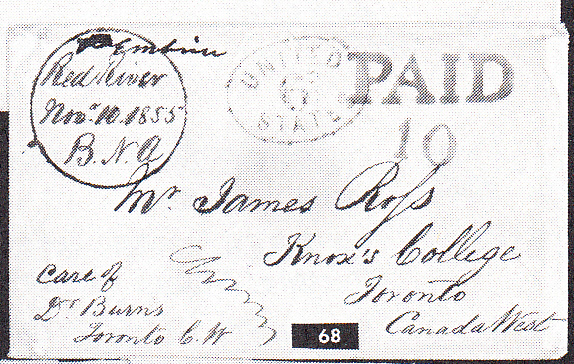 Pembina
Red River
Novr. 10. 1855
B. N. A
UNITED
STATES
PAID
10
Mr. James Ross
Knox's College
Toronto
Canada West
care of
Dr Burns
Toronto C. W
68